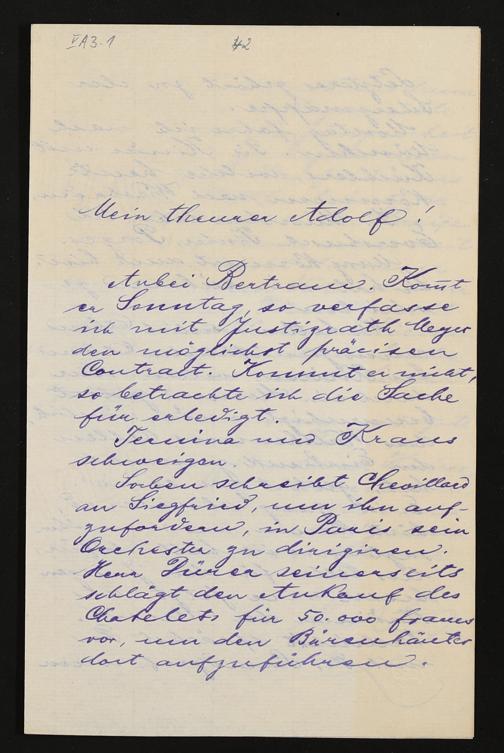 VA3-1
42
Mein theurer Adolf!
Anbei Bertram. Komt
er Sonntag, so verfasse
ich mit Justizrath Meyer
den möglichst präcisen
Contract. Kommt er nicht,
so betrachte ich die Sache
für erledigt.
Ternina und Kraus
schweigen.
Soeben schreibt Chevillard
an Siegfried, um ihn auf-
zufordern, in Paris sein
Orchester zu dirigiren.
Herr Dürer seinerseits
schlägt den Ankauf des
Chatelets für 50.000 francs
vor, um den Bärenhäuter
dort aufzuführen.